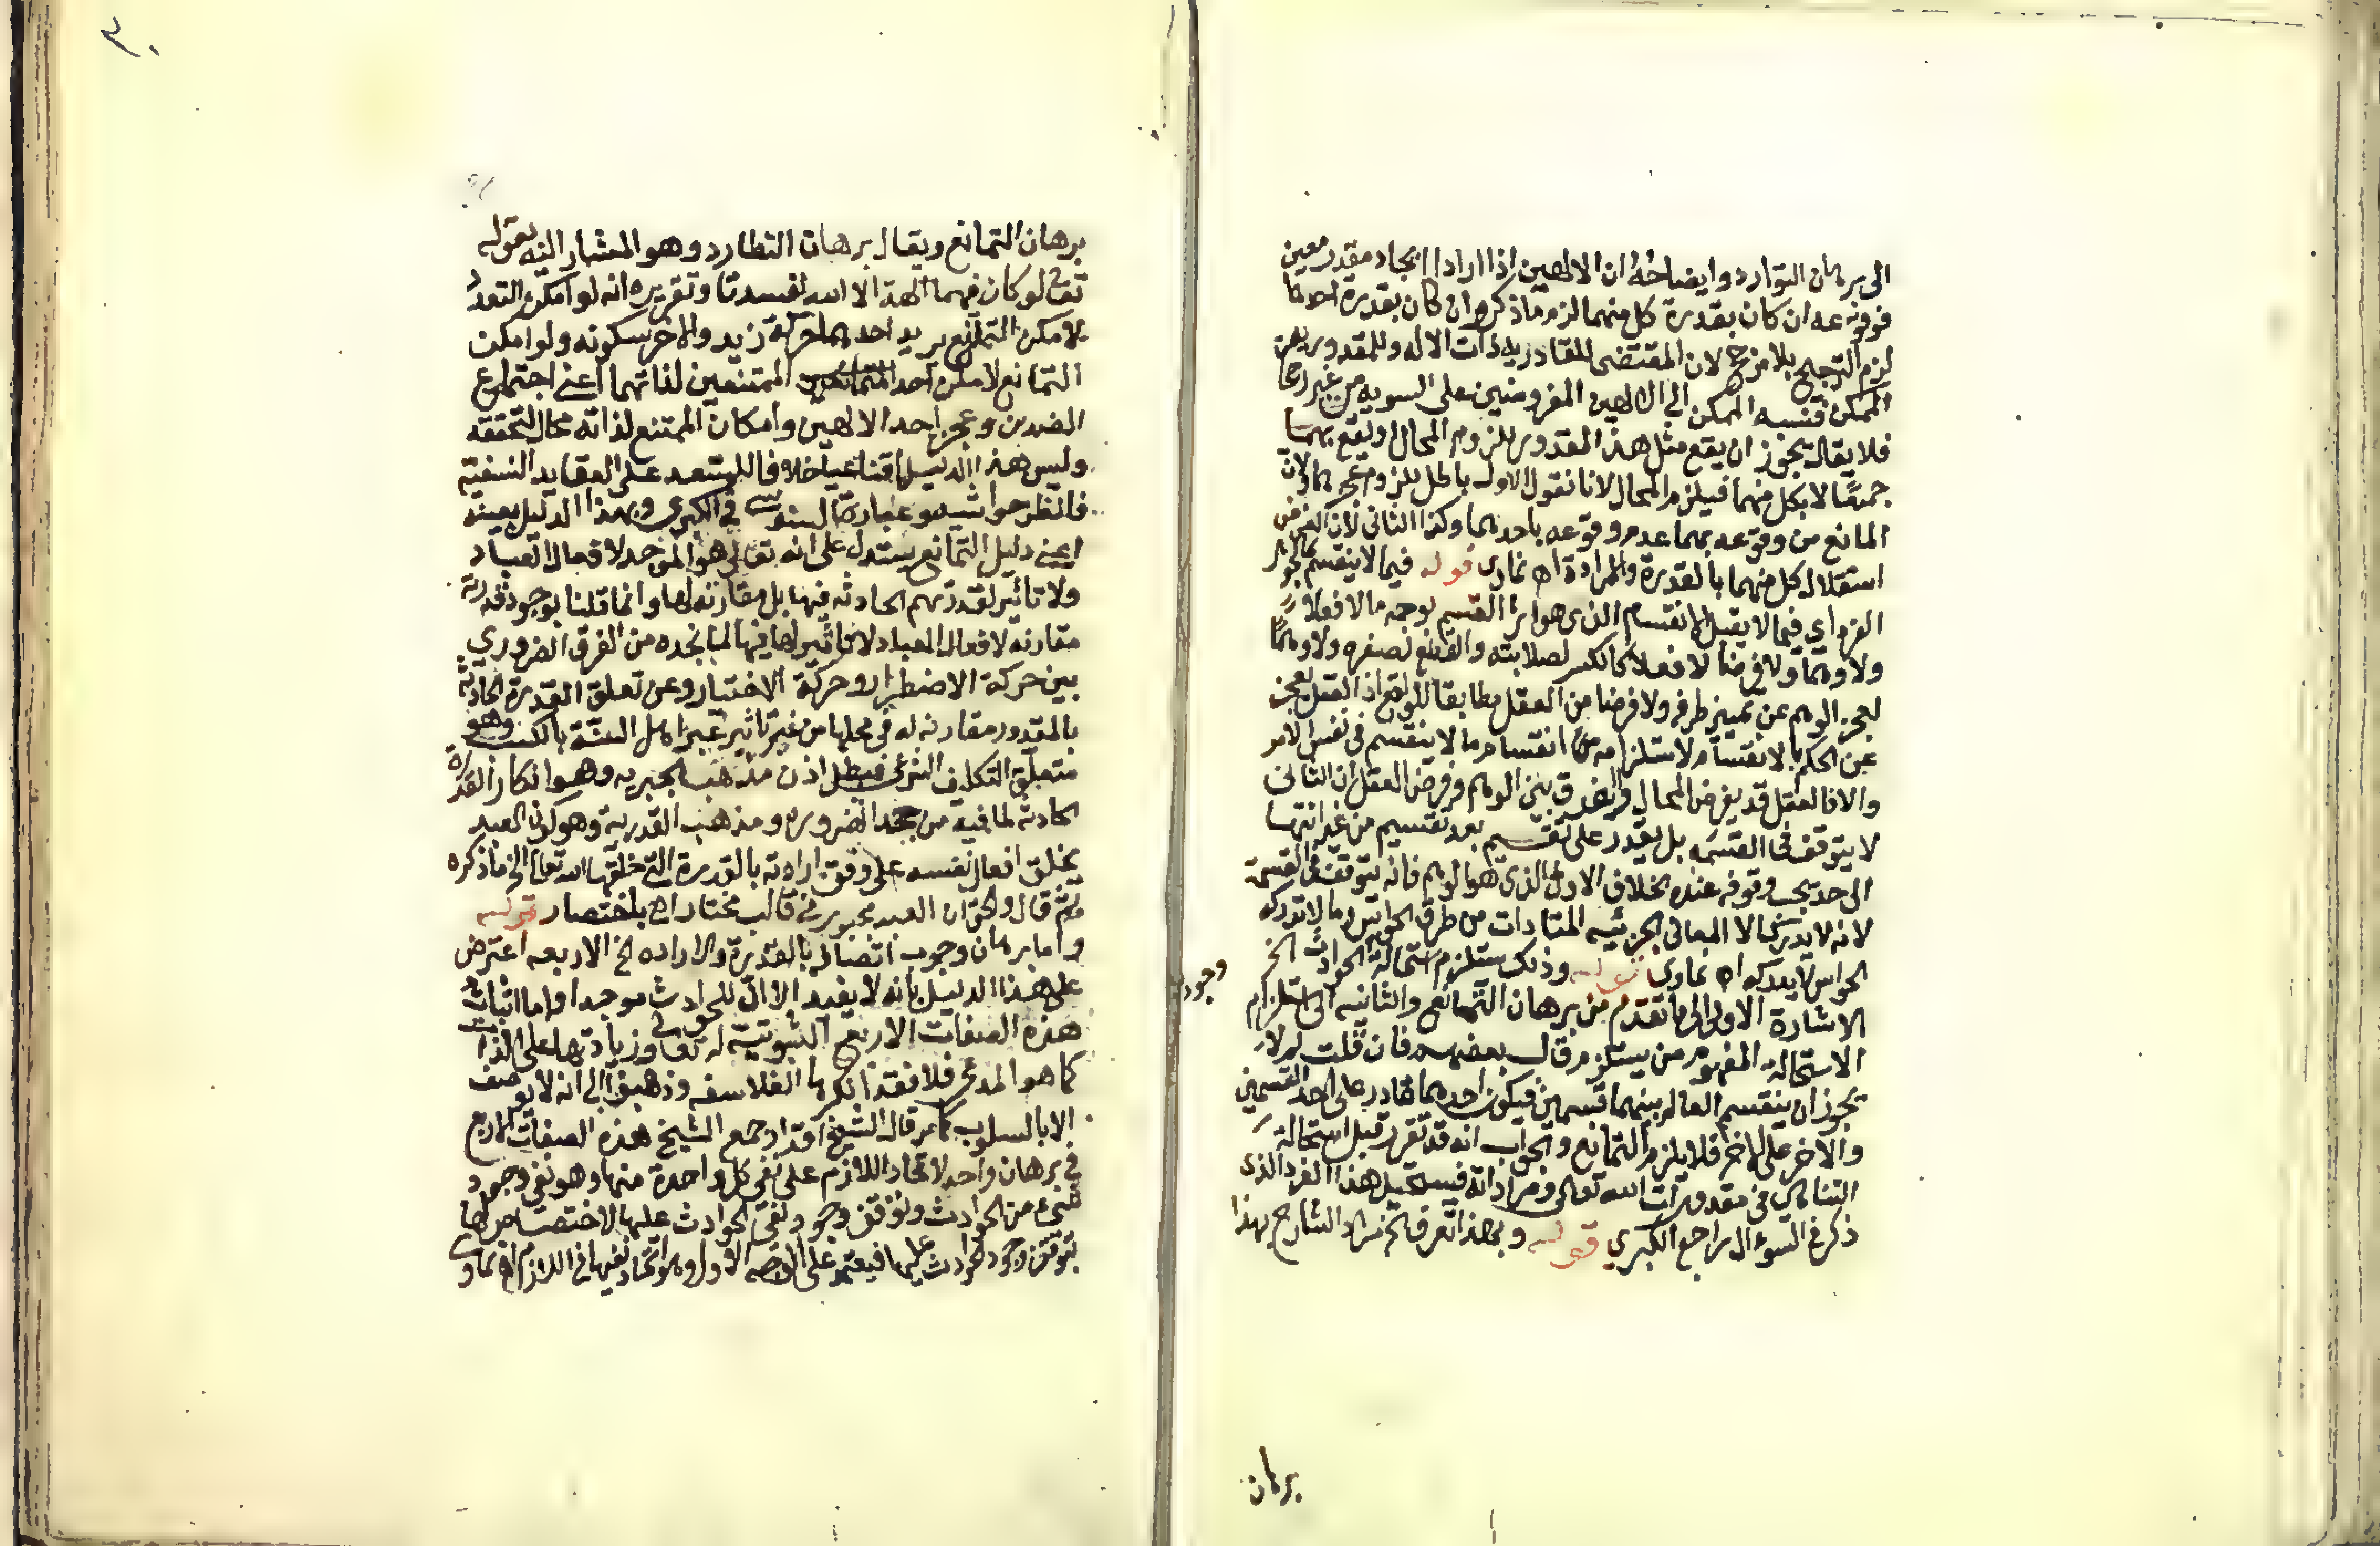 الى برهان التوارد وايضاحه ان الالهين اذا ارادا ايجاد مقدور معين
فوقوعه ان كان بقدرة كل منهما لزم ما ذكر وان كان بقدرة احدهما
لزم الترجيح بلا مرجح لان المقتضى للقادرية ذات الاله وللمقدورية
الممكن فنسبه الممكن الى الالهين المفروضين على السويه من غير رجحان
فلا يقال يجوز ان يقع مثل هذا المقدور للزوم المحال او يقع بهما
جميعًا لا بكل منهما فيلزم المحال لانا نقول الاول باطل للزوم عجزهما ولان
المانع من وقوعه بهما عدم وقوعه باحدهما وكذا الثانى لان الفرض
استقلال كل منهما بالقدرة والارادة اه غماوى قوله فيما لا ينقسم كالجوهر
الفرد اي فيما لا يقبل الانقسام الذى هو اثر القسم بوجه ما لا فعلاً
ولا وهما ولا فرضا لا فعلا كالكسر لصلابته والقطع لصغره ولا وهمًا
لعجز الوهم عن تمييز طرفه ولا فرضا من العقل مطابقا للواقع اذ العقل يعجز
عن الحكم بالانقسام لاستلزامه انقسام ما لا ينقسم في نفس الامر
والا فالعقل قد يفرض المحال والفرق بين الوهم وفرض العقل ان الثانى
لا يتوقف في القسمه بل يقدر على تقسيم بعد تقسيم من غير انتها
الى حد يجب وقوفه عنده بخلاف الاول الذى هو الوهم فانه يتوقف في القسمة
لانه لا يدرك الا المعانى الجزئيه المتادات من طرق الحواس وما لا تدركه
الحواس لا يدركه اه غماوى قوله وذلك يستلزم استحالة الحوادث الخ
وجود
الاشارة الاولى الى ما تقدم من برهان التمانع والثانيه الى استلزام
الاستحالة المفهوم من يستلزم قال بعضهم فان قلت لم لا
يجوز ان ينقسم العالم بينهما قسمين فيكون احدهما قادر على احد القسمين
والاخر على الاخر فلا يلزم التمانع والجواب انه قد تقرر قبل استحالة
التناهي في مقدورات الله تعالى ومراداته فيستحيل هذا الفرد الذى
ذكر في السؤال راجع الكبري قوله وبهذا تعرف الخ مراد الشارح بهذا
برهان
برهان التمانع ويقال برهان التطارد وهو المشار اليه بقوله
تعالى لو كان فيهما الهة الا الله لفسدتا وتقريره انه لو امكن التعدد
لامكن التمانع يريد احدهما حركة زيد والاخر سكونه ولو امكن
التمانع لامكن احد الممتنعين لذاتهما اعنى اجتماع
الضدين وعجز احد الالهين وامكان الممتنع لذاته محال لتحققه
وليس هذا الدليل اقناعيا خلافا للسعد على العقايد النسفيه
فانظر حواشيه وعبارة السنوسى في الكبرى وبهذا الدليل بعينه
اعنى دليل التمانع يستدل على انه تعالى هو الموجد لافعال العباد
ولا تاثير لقدرتهم الحادثه فيها بل مقارنه لها وانما قلنا بوجود قدرة
مقارنه لافعال العباد لا تاثير لها فيها لما نجده من الفرق الضروري
بين حركة الاضطرار وحركة الاختيار وعن تعلق القدرة الحادثة
بالمقدور مقارنه له في محلها من غير تاثير عبر اهل السنة بالكسب وهو
متعلق التكليف الشرعى فبطل اذن مذهب الجبريه وهو انكار القدرة
الحادثه لما فيه من جحد الضروره ومذهب القدرية وهو كون العبد
يخلق افعال نفسه على وفق ارادته بالقدرة التى خلقها الله تعالى الخ ما ذكره
ثم قال والحق ان العبد مجبور في قالب مختار اه باختصار قوله
واما برهان وجوب اتصافه بالقدرة والاراده الخ الاربعه اعترض
على هذا الدليل بانه لا يفيد الا ان للحوادث موجدا واما اثبات
هذه الصفات الاربع الثبوتية له تعالى وزيادتها على الذات
كما هو المدعى فلا فقد انكرها الفلاسفه وذهبوا الى انه لا يوصف
الا بالسلوب كما مر قال الشيخ اقدار جمع الشيخ هذه الصفات الاربع
في برهان واحد لاتحاد اللازم على نفى كل واحدة منها وهو نفى وجود
شيء من الحوادث ولتوقف وجود الحوادث عليها لاختصاصها
بتوقف وجود الحوادث عليها فيعتبر على الاول وهو اتحاد نفيها في اللازم اه غماوى